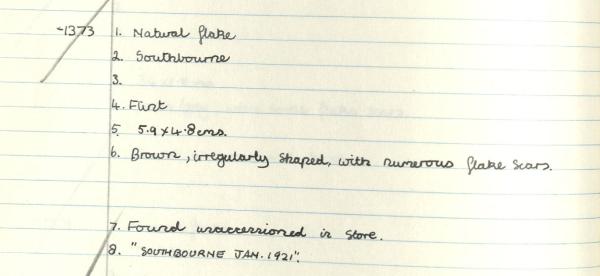 -1373 1. Natural flake
2. Southbourne
3.
4. Flint
5. 5.9 x 4.8 cms.
6. Brown, irregularly shaped, with numerous flake scars.
7. Found unaccessioned in store.
8. "SOUTHBOURNE JAN. 1921".